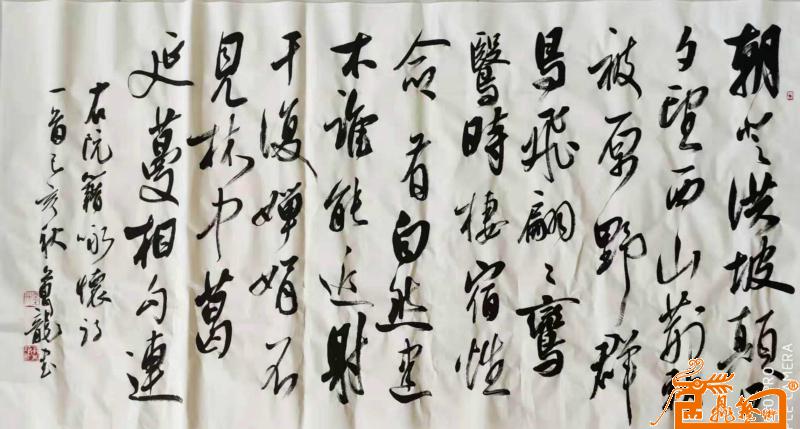 朝登洪坡顛日
夕望西山荆棘
被原野群
鳥飛翩〻鸞
鷖時棲宿性
命有自然建
木誰能近射
干復嬋娟不
見林中葛
延蔓相勾連
右阮籍咏懷詩
一首己亥秋龍書
CAMERA